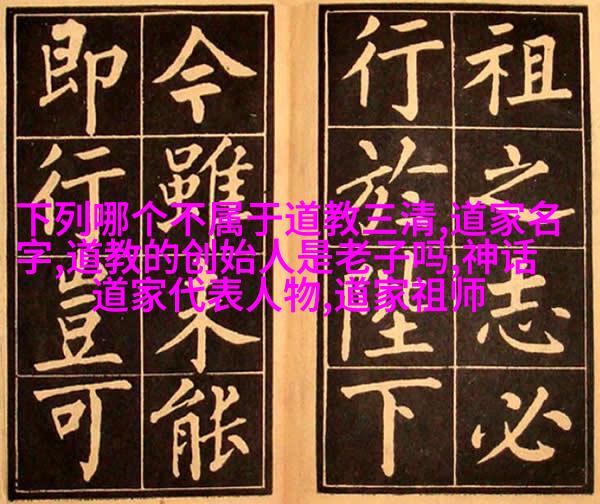 祖之志必
行於陛下
今雖未能
即行豈可
下列哪个不属于道教三清,道家名
字,道教的创始人是老子吗,神话
道家代表人物,道家祖师